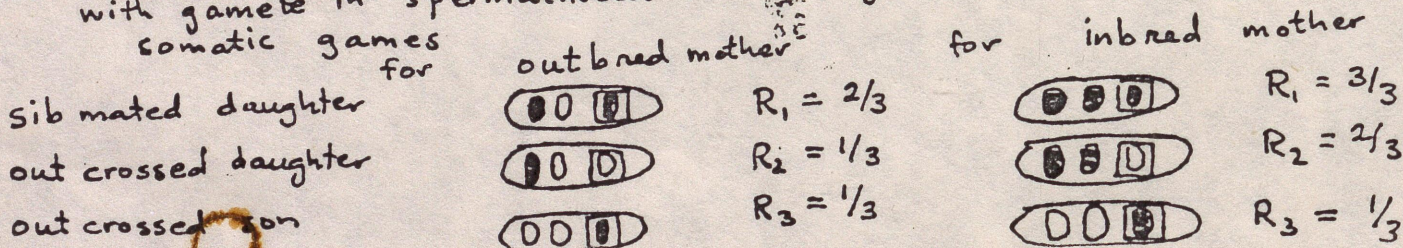 with gamete in
somatic games
for outbred mother for inbred mother
sib mated daughter R₁ = 2/3 R₁ = 3/3
out crossed daughter R₂ = 1/3 R₂ = 2/3
out crossed son R₃ = 1/3 R₃ = 1/3